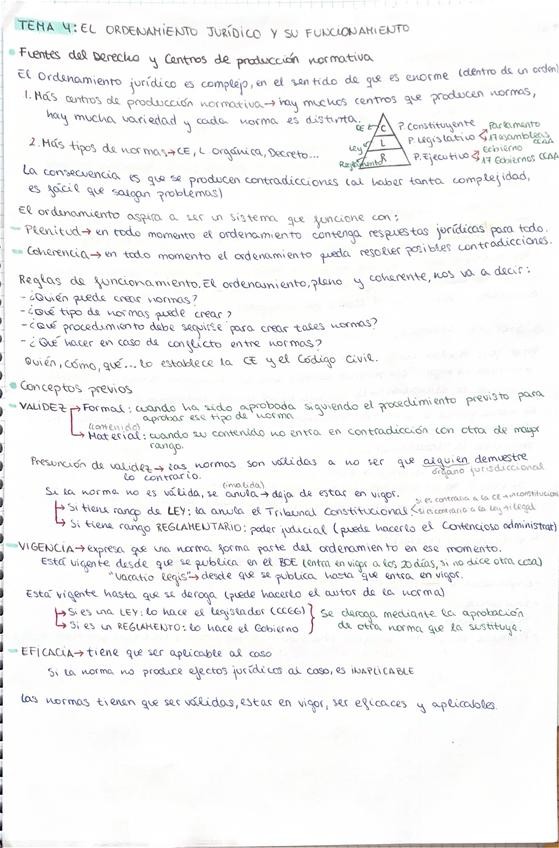 TEMA 4: EL ORDENAMIENTO JURÍDICO Y SU FUNCIONAMIENTO
Fuentes del Derecho y Centros de producción normativa
El Ordenamiento jurídico es complejo, en el sentido de que es enorme (dentro de un orden)
1. Más centros de producción normativa → hay muchos centros que producen normas,
hay mucha variedad y cada norma es distinta.
CE → C P. Constituyente
Ley → L P. Legislativo Parlamento
17 asambleas CCAA
Reglamento R P. Ejecutivo Gobierno
17 Gobiernos CCAA
2. Más tipos de normas → CE, L orgánica, Decreto...
La consecuencia es que se producen contradicciones (al haber tanta complejidad,
es fácil que salgan problemas)
El ordenamiento aspira a ser un sistema que funcione con:
- Plenitud → en todo momento el ordenamiento contenga respuestas jurídicas para todo.
- Coherencia → en todo momento el ordenamiento pueda resolver posibles contradicciones.
Reglas de funcionamiento. El ordenamiento, pleno y coherente, nos va a decir:
- ¿Quién puede crear normas?
- ¿Qué tipo de normas puede crear?
- ¿Qué procedimiento debe seguirse para crear tales normas?
- ¿Qué hacer en caso de conflicto entre normas?
Quién, cómo, qué... lo establece la CE y el Código Civil.
Conceptos previos
- VALIDEZ → Formal: cuando ha sido aprobada siguiendo el procedimiento previsto para
aprobar ese tipo de norma
(contenido)
→ Material: cuando su contenido no entra en contradicción con otra de mayor
rango.
Presunción de validez → las normas son válidas a no ser que alguien demuestre
lo contrario. órgano jurisdiccional
(invalida)
Si la norma no es válida, se anula → deja de estar en vigor.
→ Si tiene rango de LEY: la anula el Tribunal Constitucional
si es contraria a la CE → inconstitucional
si es contraria a la ley → ilegal
→ Si tiene rango REGLAMENTARIO: poder judicial (puede hacerlo el Contencioso administrat)
- VIGENCIA → expresa que una norma forma parte del ordenamiento en ese momento.
Está vigente desde que se publica en el BOE (entra en vigor a los 20 días, si no dice otra cosa)
"Vacatio legis" → desde que se publica hasta que entra en vigor.
Está vigente hasta que se deroga (puede hacerlo el autor de la norma)
→ Si es una LEY: lo hace el legislador (CCGG)
→ Si es un REGLAMENTO: lo hace el Gobierno
Se deroga mediante la aprobación
de otra norma que la sustituye.
- EFICACIA → tiene que ser aplicable al caso
Si la norma no produce efectos jurídicos al caso, es INAPLICABLE
Las normas tienen que ser válidas, estar en vigor, ser eficaces y aplicables.